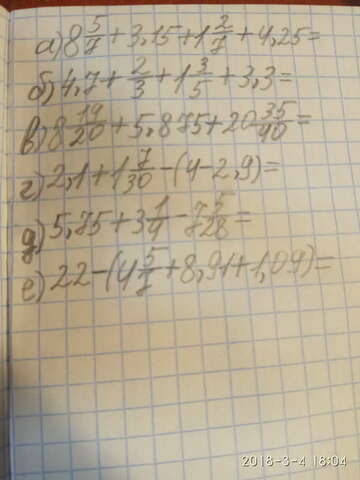 а) 8 5/7 + 3,15 + 1 2/7 + 4,25 =
б) 4,7 + 2/3 + 1 3/5 + 3,3 =
в) 8 19/20 + 5,875 + 20 35/40 =
г) 2,1 + 1 7/30 - (4 - 2,9) =
д) 5,75 + 3 1/4 - 7 5/28 =
е) 22 - (4 5/7 + 8,91 + 1,09) =
2018-3-4 18:04